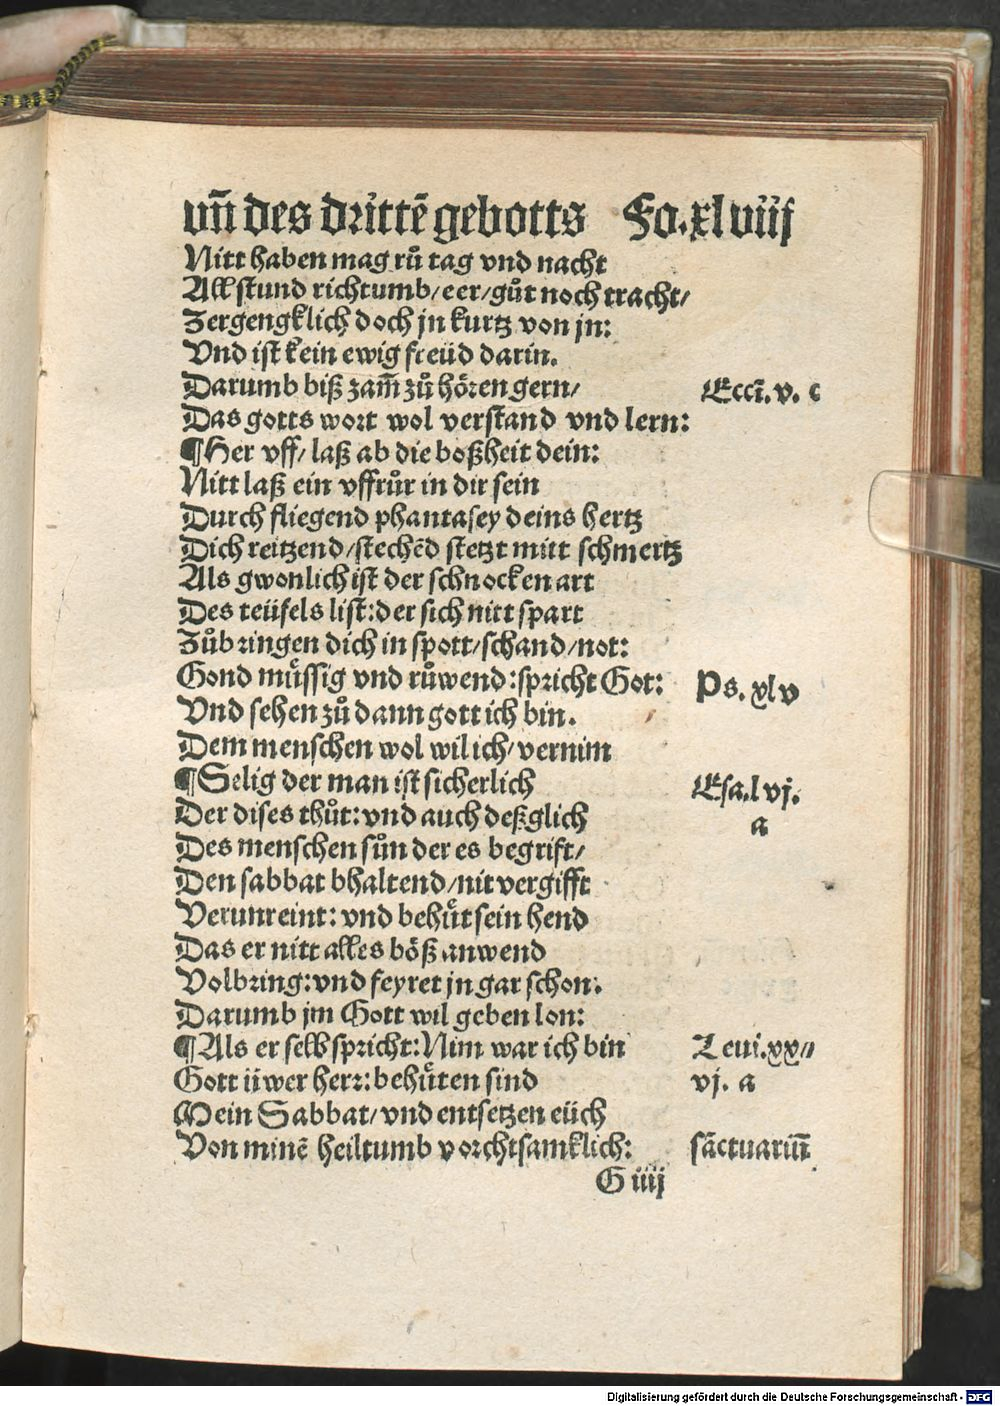 vn̄ des drittē gebotts Fo.xlviij
Nitt haben mag rů tag vnd nacht
All stund richtumb/eer/gůt noch tracht/
Zergengklich doch jn kurtz von jn:
Vnd ist kein ewig freüd darin.
Darumb biß zam̄ zů hören gern/ Eccī. v. c
Das gotts wort wol verstand vnd lern:
¶Her vff/ laß ab die boßheit dein:
Nitt laß ein vffrůr in dir sein
Durch fliegend phantasey deins hertz
Dich reitzend/stechēd stetzt mitt schmertz
Als gwonlich ist der schnocken art
Des teüfels list:der sich nitt spart
Zůbringen dich in spott/schand/not:
Gond müssig vnd růwend:spricht Got: Ps. xlv
Vnd sehen zů dann gott ich bin.
Dem menschen wol wil ich/vernim
¶Selig der man ist sicherlich Esa.lvj.
Der dises thůt:vnd auch deßglich a
Des menschen sůn der es begrift/
Den sabbat bhaltend/nit vergifft
Verunreint: vnd behüt sein hend
Das er nitt alles böß anwend
Volbring:vnd feyret jn gar schon:
Darumb jm Gott wil geben lon:
¶Als er selb spricht:Nim war ich bin Leui.xx//
Gott üwer herr:behüten sind vj. a
Mein Sabbat/vnd entsetzen eüch
Von minē heiltumb vorchtsamklich: sāctuariū
G iiij
Digitalisierung gefördert durch die Deutsche Forschungsgemeinschaft - DFG